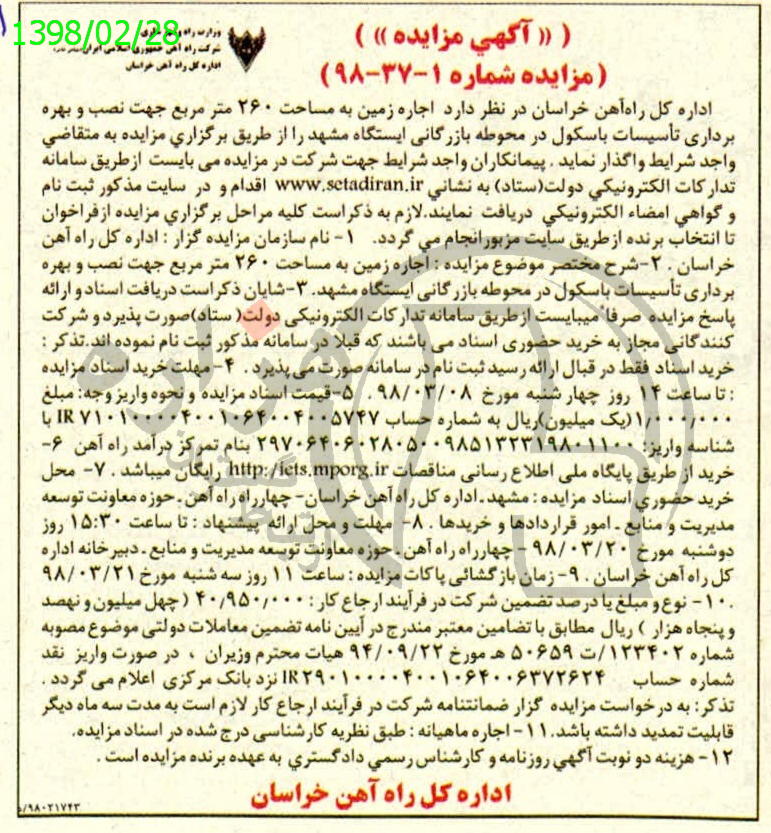 1398/02/28
وزارت راه و
شرکت راه آهن جمهوری اسلامی ایران
اداره کل راه آهن خراسان
( « آگهي مزايده » )
(مزایده شماره ۱-۳۷-۹۸)
اداره کل راه‌آهن خراسان در نظر دارد اجاره زمین به مساحت ۲۶۰ متر مربع جهت نصب و بهره
برداری تأسیسات باسکول در محوطه بازرگانی ایستگاه مشهد را از طریق برگزاري مزایده به متقاضي
واجد شرایط واگذار نماید . پیمانکاران واجد شرایط جهت شرکت در مزایده می بایست ازطریق سامانه
تدارکات الکترونیکي دولت(ستاد) به نشاني www.setadiran.ir اقدام و در سایت مذکور ثبت نام
و گواهي امضاء الکترونیکي دریافت نمایند.لازم به ذکراست کلیه مراحل برگزاري مزایده ازفراخوان
تا انتخاب برنده ازطریق سایت مزبورانجام مي گردد. ۱- نام سازمان مزایده گزار : اداره کل راه آهن
خراسان . ۲-شرح مختصر موضوع مزایده : اجاره زمین به مساحت ۲۶۰ متر مربع جهت نصب و بهره
برداری تأسیسات باسکول در محوطه بازرگانی ایستگاه مشهد. ۳-شایان ذکراست دریافت اسناد و ارائه
پاسخ مزایده صرفاً میبایست ازطریق سامانه تدارکات الکترونیکی دولت( ستاد)صورت پذیرد و شرکت
کنندگانی مجاز به خرید حضوری اسناد می باشند که قبلا در سامانه مذکور ثبت نام نموده اند.تذکر :
خرید اسناد فقط در قبال ارائه رسید ثبت نام در سامانه صورت می پذیرد . ۴-مهلت خرید اسناد مزایده
: تا ساعت ۱۴ روز چهار شنبه مورخ ۹۸/۰۳/۰۸ . ۵-قیمت اسناد مزایده و نحوه واریز وجه: مبلغ
۱/۰۰۰/۰۰۰(یک میلیون)ریال به شماره حساب IR ۷۱۰۱۰۰۰۰۴۰۰۱۰۶۴۰۰۴۰۰۵۷۴۷ با
شناسه واریز: ۲۹۷۰۶۴۰۶۰۲۸۰۵۰۰۹۸۵۱۳۲۳۱۹۸۰۱۱۰۰ بنام تمرکز درآمد راه آهن ۶-
خرید از طریق پایگاه ملی اطلاع رسانی مناقصات http:/iets.mporg.ir رایگان میباشد . ۷- محل
خرید حضوري اسناد مزایده : مشهد ـ اداره کل راه آهن خراسان- چهارراه راه آهن ـ حوزه معاونت توسعه
مدیریت و منابع ـ امور قراردادها و خریدها . ۸- مهلت و محل ارائه پیشنهاد : تا ساعت ۱۵:۳۰ روز
دوشنبه مورخ ۹۸/۰۳/۲۰ - چهارراه راه آهن ـ حوزه معاونت توسعه مدیریت و منابع ـ دبیرخانه اداره
کل راه آهن خراسان . ۹- زمان بازگشائی پاکات مزایده : ساعت ۱۱ روز سه شنبه مورخ ۹۸/۰۳/۲۱
.۱۰- نوع و مبلغ یا درصد تضمین شرکت در فرآیند ارجاع کار : ۴۰/۹۵۰/۰۰۰ ( چهل میلیون و نهصد
و پنجاه هزار ) ریال مطابق با تضامین معتبر مندرج در آیین نامه تضمین معاملات دولتی موضوع مصوبه
شماره ۱۲۳۴۰۲/ت ۵۰۶۵۹ هـ مورخ ۹۴/۰۹/۲۲ هیات محترم وزیران ، در صورت واریز نقد
شماره حساب IR۲۹۰۱۰۰۰۰۴۰۰۱۰۶۴۰۰۶۳۷۲۶۲۴ نزد بانک مرکزی اعلام می گردد .
تذکر: به درخواست مزایده گزار ضمانتنامه شرکت در فرآیند ارجاع کار لازم است به مدت سه ماه دیگر
قابلیت تمدید داشته باشد. ۱۱- اجاره ماهیانه : طبق نظریه کارشناسی درج شده در اسناد مزایده.
۱۲- هزینه دو نوبت آگهي روزنامه و کارشناس رسمي دادگستري به عهده برنده مزایده است .
اداره کل راه آهن خراسان
۹۸۰۲۱۷۴۳/د